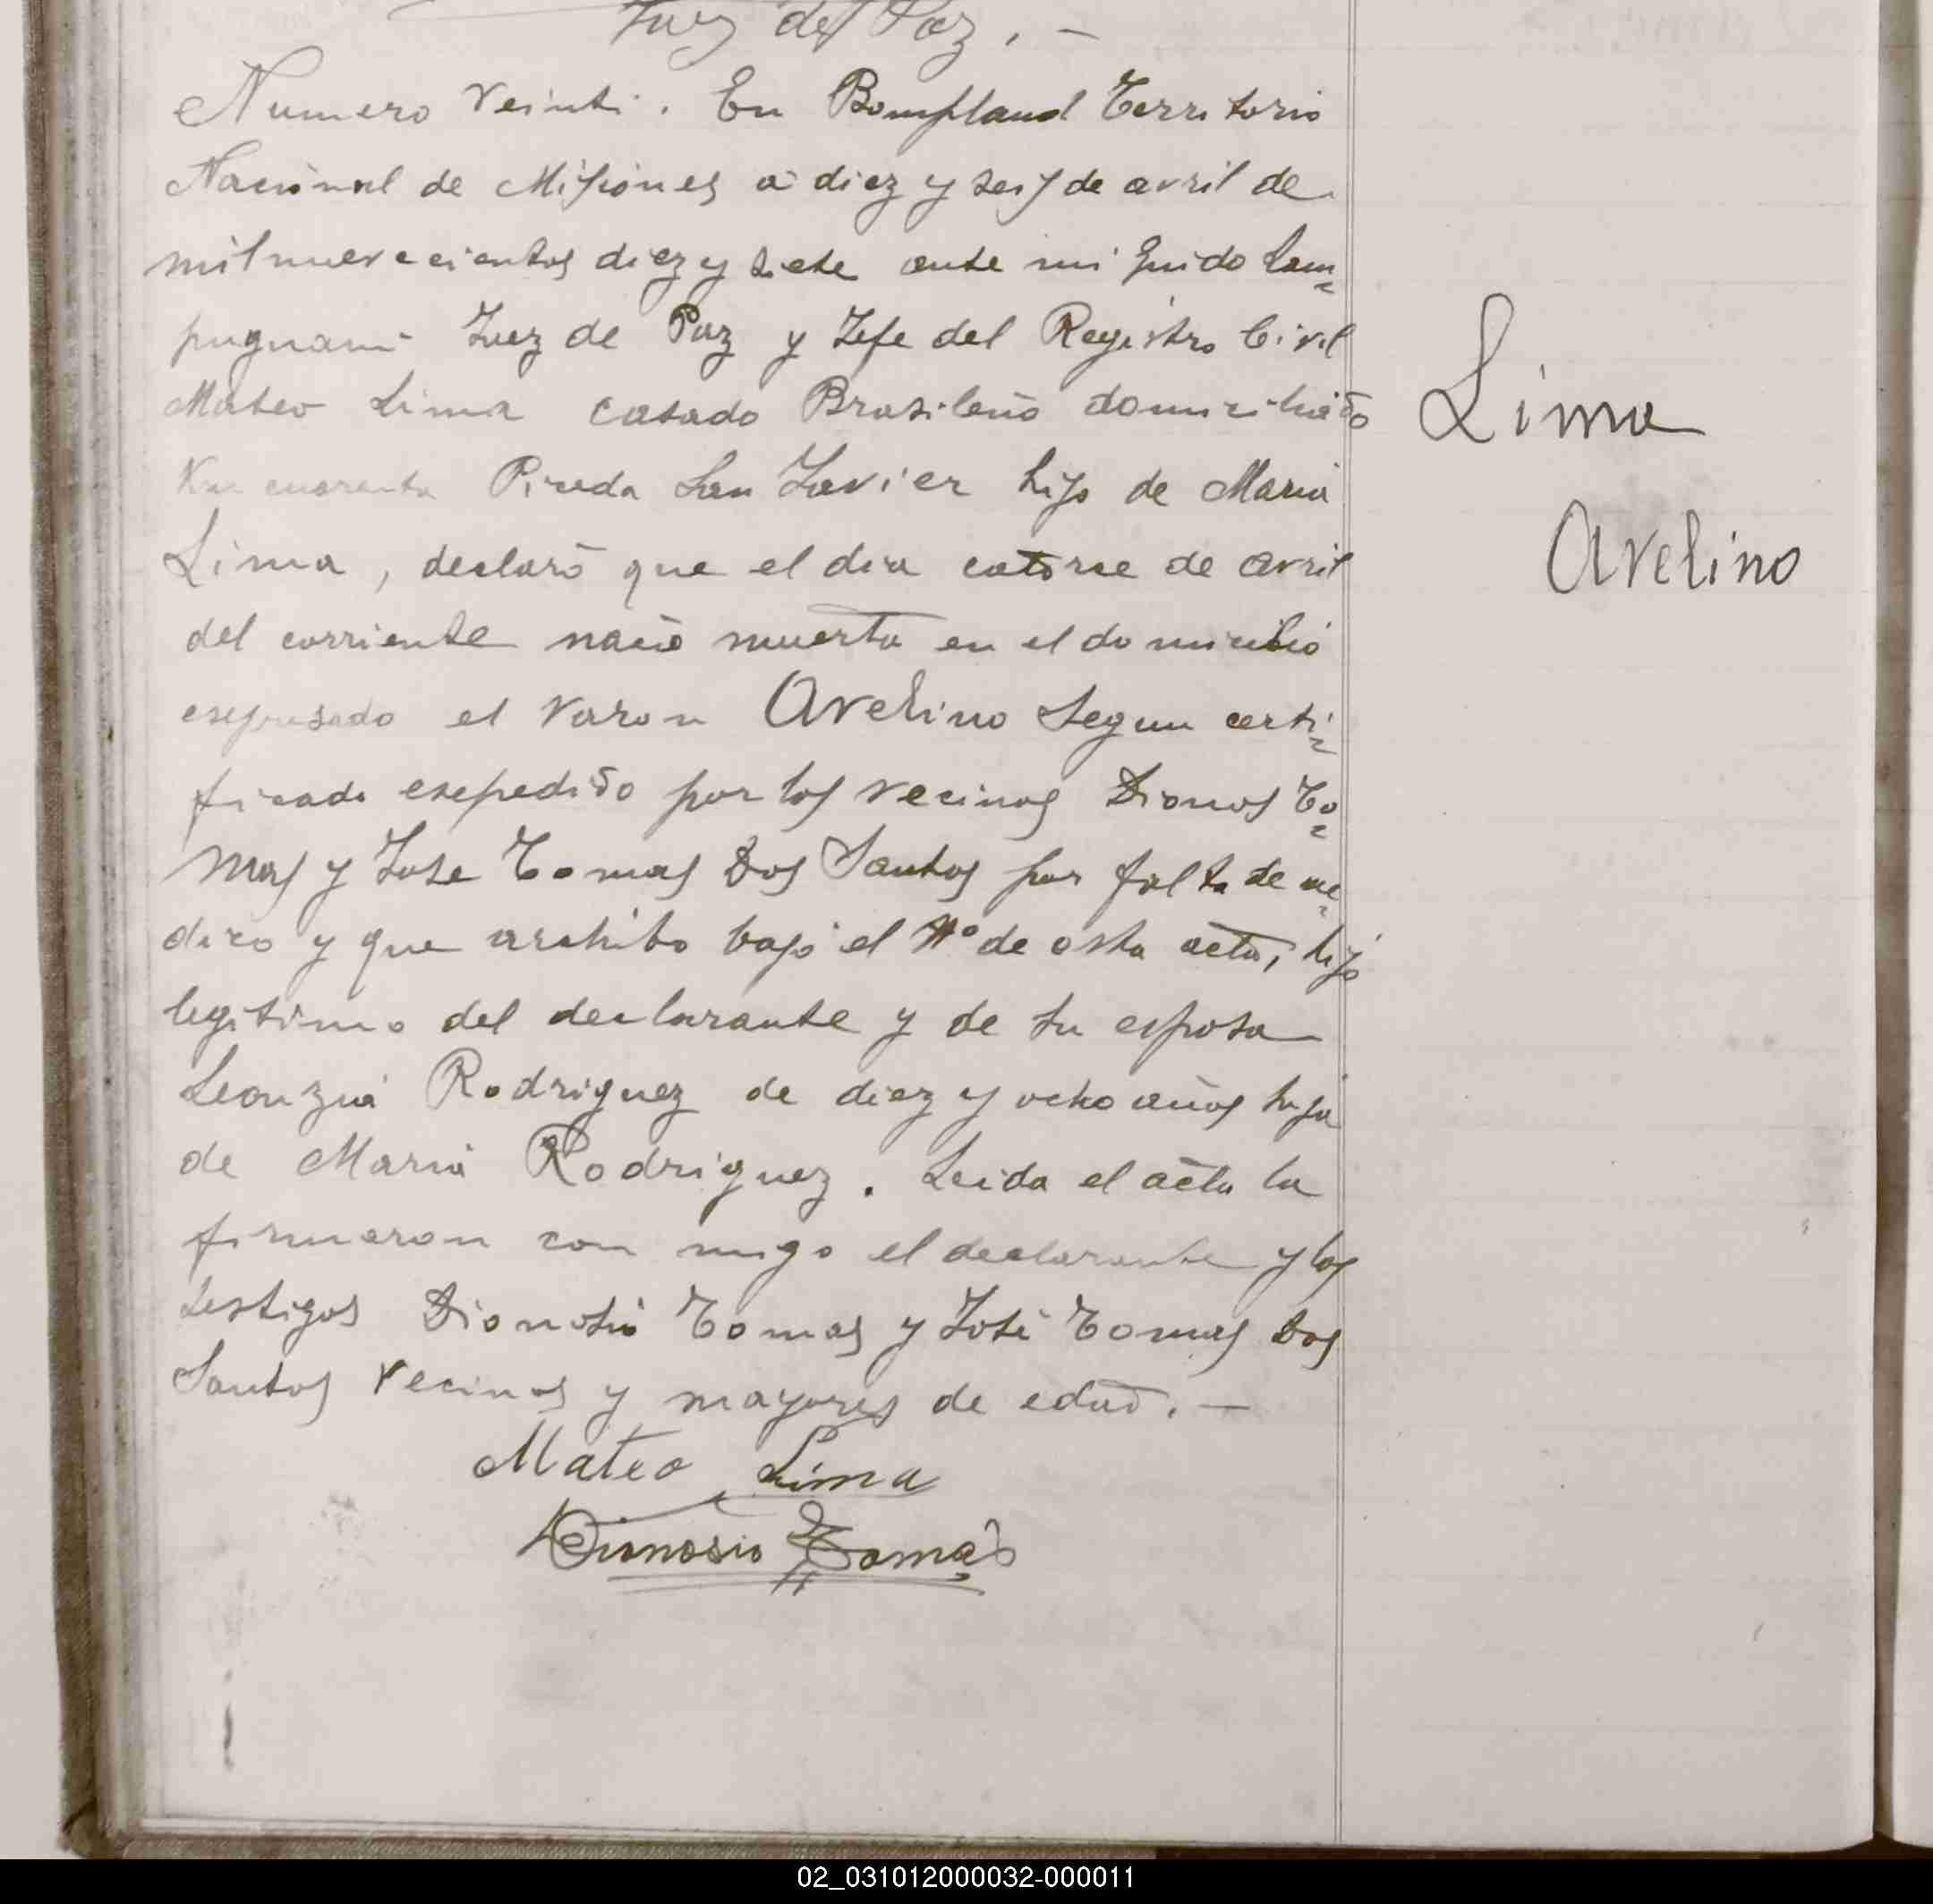 Juez de Paz. —
Numero veinti. En Bompland Territorio
Nacional de Misiones a diez y seis de avril de
mil nuevecientos diez y siete ante mi Guido Lam=
pugnani Juez de Paz y Jefe del Registro Civil
Mateo Lima casado Brasileño domiciliado
Km cuarenta Picada San Javier hijo de Maria
Lima, declaró que el dia catorse de avril
del corriente nació muerto en el domicilio
esepresado el varon Avelino segun certi=
ficado esepedido por los vecinos Dionos To=
mas y Jose Tomas Dos Santos por falta de me=
dico y que archibo bajo el Nº de esta acta, hijo
legitimo del declarante y de su esposa
Leonzia Rodriguez de diez y ocho años hija
de Maria Rodriguez. Leida el acta la
firmaron con migo el declarante y los
testigos Dionosio Tomas y José Tomas Dos
Santos vecinos y mayores de edad. —
Mateo Lima
Dionosio Tomas
Lima
Avelino
02_031012000032-000011